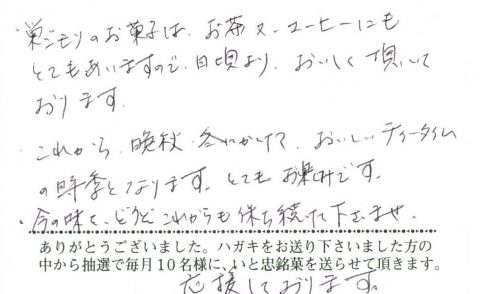 ・巣ごもりのお菓子は、お茶又、コーヒーにも
とてもあいますので、日頃より、おいしく頂いて
おります。
・これから、晩秋、冬にかけて、おいしいティータイム
の時季となります。とてもお楽しみです。
・今の味を、どうぞこれからも保ち続けて下さいませ。
ありがとうございました。ハガキをお送り下さいました方の
中から抽選で毎月10名様に、いと忠銘菓を送らせて頂きます。
応援しております。